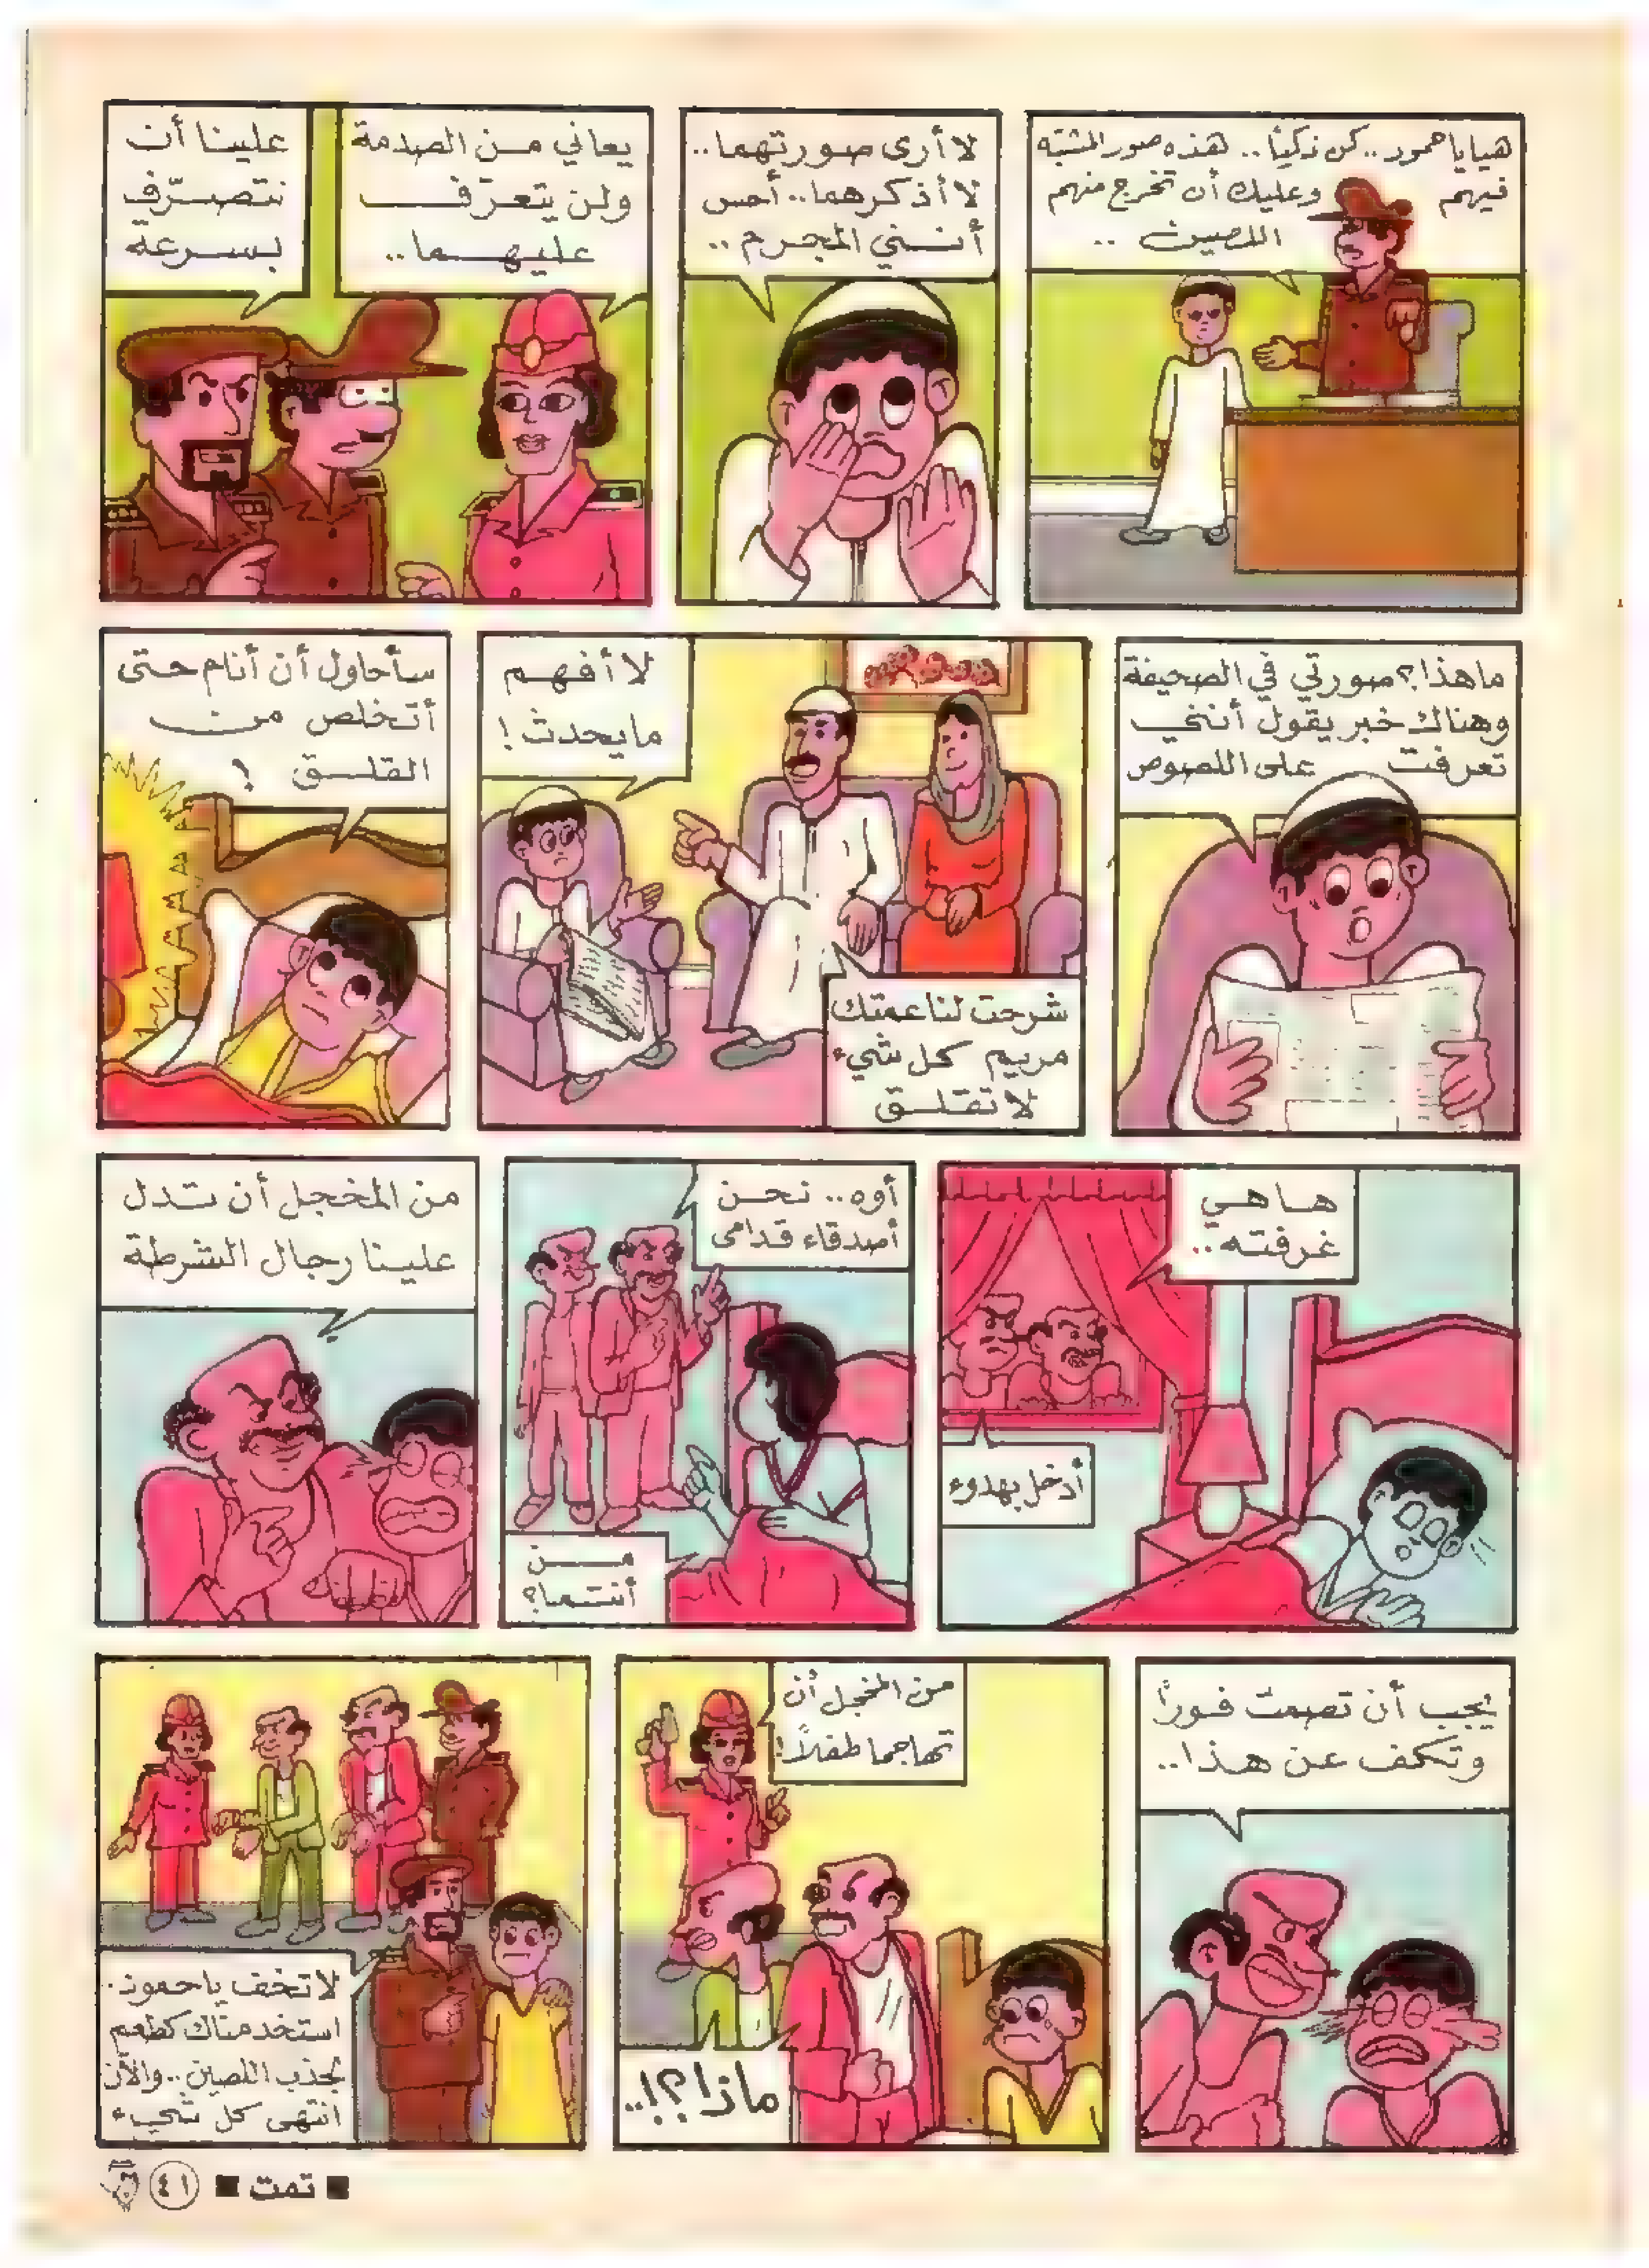 هيا يا حمود.. كن ذكياً.. هذه صور المشتبه
فيهم وعليك أن تخرج منهم
اللصين ..
لا أرى صورتهما..
لا أذكرهما.. أحس
أنني المجرم ..
يعاني من الصدمة
ولن يتعرف
عليهما..
علينا أن
نتصرّف
بسرعة
ماهذا؟ صورتي في الصحيفة
وهناك خبر يقول أنني
تعرفت على اللصوص
لا أفهم
مايحدث!
شرحت لنا عمتك
مريم كل شيء
لا تقلق
سأحاول أن أنام حتى
أتخلص من
القلق ؟
هاهي
غرفته..
أدخل بهدوء
أوه.. نحن
أصدقاء قدامى
من
أنتما؟
من المخجل أن تدل
علينا رجال الشرطة
يجب أن تصمت فوراً
وتكف عن هذا..
من المخجل أن
تهاجما طفلاً!
ماذا؟!..
لا تخف يا حمود.
استخدمناك كطعم
لجذب اللصين.. والآن
انتهى كل شيء
■ تمت ■ ٤١